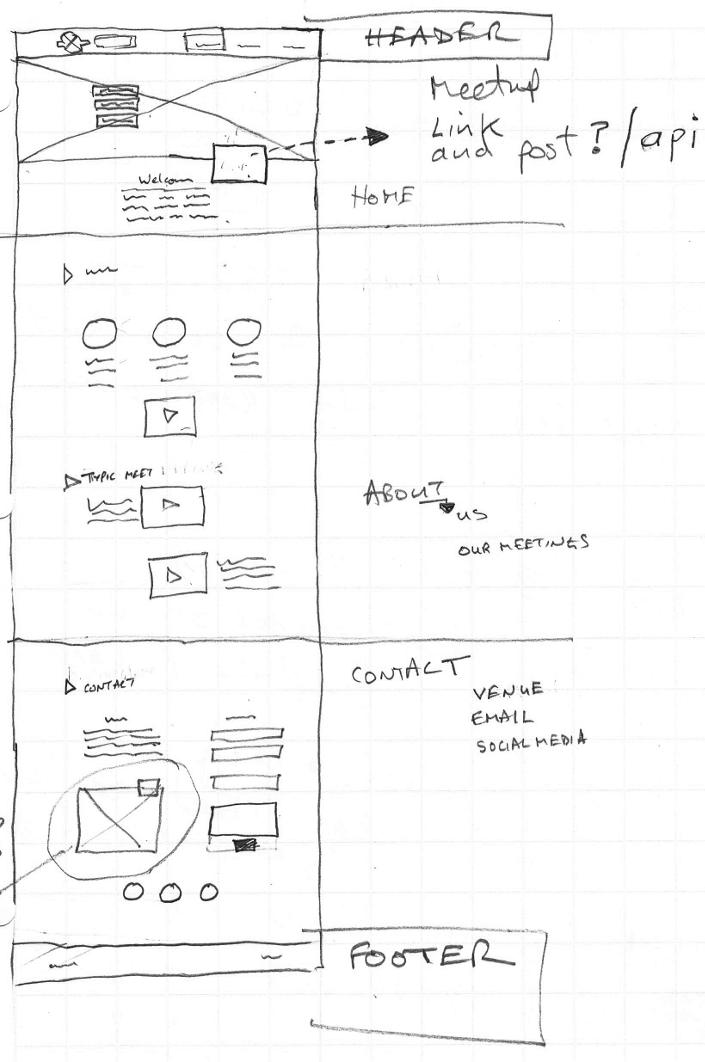 HEADER
Meetup
Link
and post? / api
Welcom
HOME
TYPIC MEET
ABOUT
us
OUR MEETINGS
CONTACT
CONTACT
VENUE
EMAIL
SOCIAL MEDIA
FOOTER